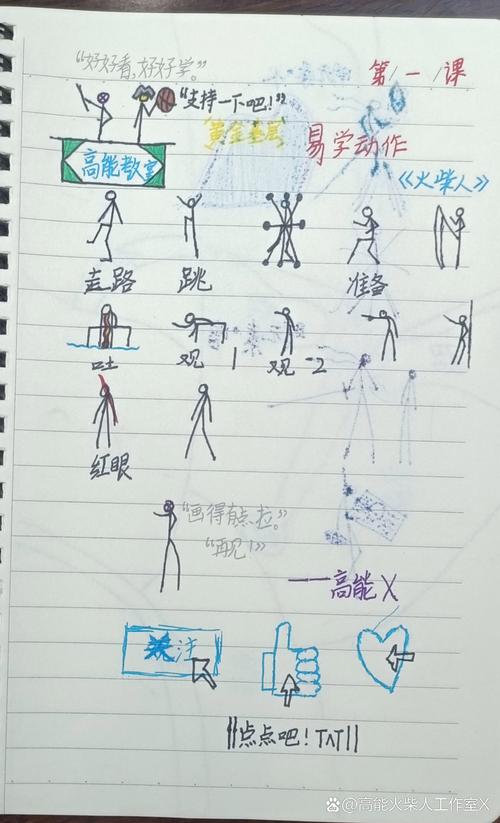 “好好看,好好学。”
第一课
“支持一下吧!”
黄金基层
易学动作
高能教室
《火柴人》
走路 跳 准备
吐 观1 观-2
红眼
“画得有点拉。”
“再见!”
——高能X
关注
||点点吧! TAT||
@高能火柴人工作室X